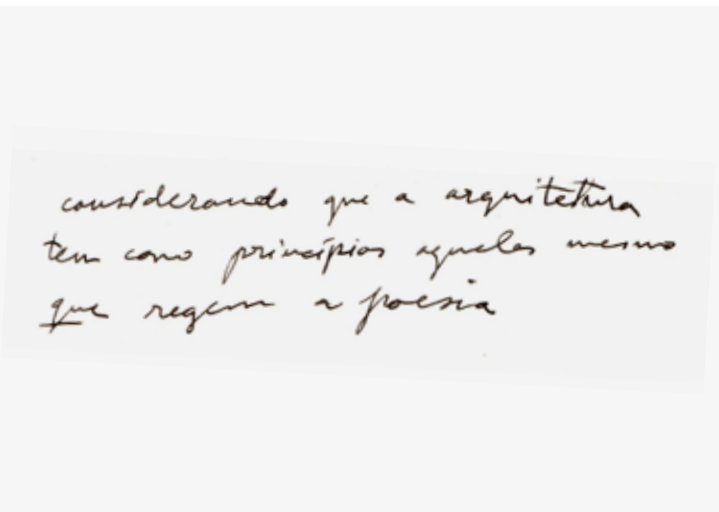 considerando que a arquitetura
tem como princípios aqueles mesmo
que regem a poesia